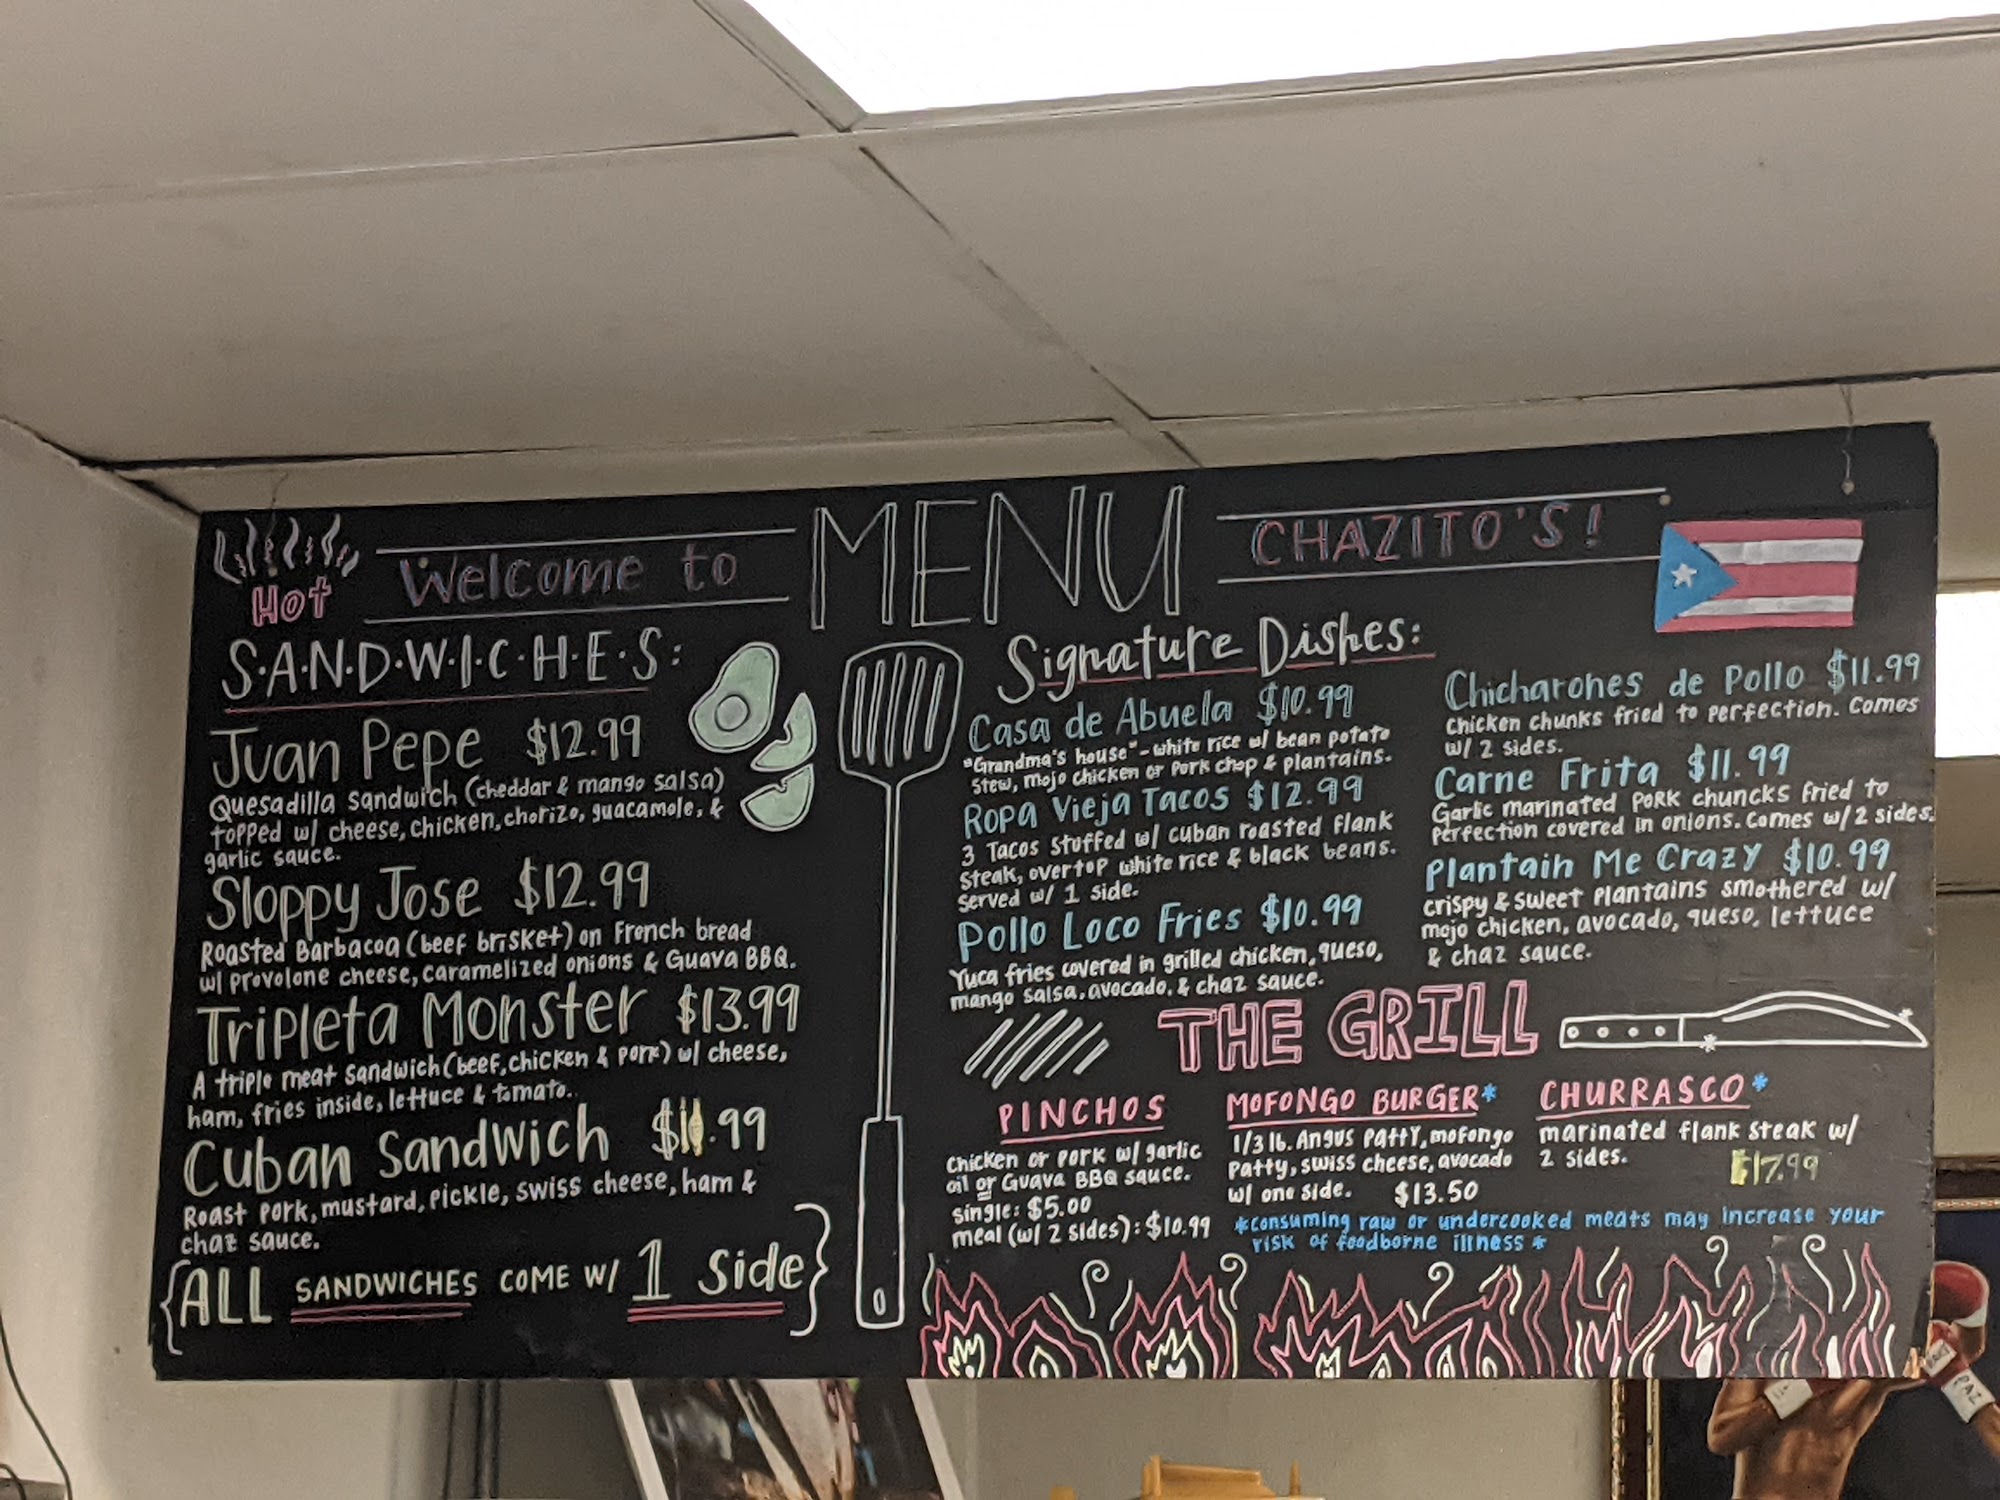 Hot
Welcome to
MENU
CHAZITO'S!
S·A·N·D·W·I·C·H·E·S:
Juan Pepe $12.99
Quesadilla sandwich (cheddar & mango salsa)
topped w/ cheese, chicken, chorizo, guacamole, &
garlic sauce.
Sloppy Jose $12.99
Roasted Barbacoa (beef brisket) on French bread
w/ provolone cheese, caramelized onions & Guava BBQ.
Tripleta Monster $13.99
A triple meat sandwich (beef, chicken & pork) w/ cheese,
ham, fries inside, lettuce & tomato.
Cuban Sandwich $11.99
Roast pork, mustard, pickle, swiss cheese, ham &
chaz sauce.
{ALL SANDWICHES COME W/ 1 Side}
Signature Dishes:
Casa de Abuela $10.99
"Grandma's house" - white rice w/ bean potato
stew, mojo chicken or pork chop & plantains.
Ropa Vieja Tacos $12.99
3 Tacos stuffed w/ cuban roasted flank
steak, overtop white rice & black beans.
Served w/ 1 side.
Pollo Loco Fries $10.99
Yuca fries covered in grilled chicken, queso,
mango salsa, avocado, & chaz sauce.
Chicharones de Pollo $11.99
Chicken chunks fried to perfection. Comes
w/ 2 sides.
Carne Frita $11.99
Garlic marinated pork chuncks fried to
perfection covered in onions. Comes w/ 2 sides.
Plantain Me Crazy $10.99
crispy & sweet plantains smothered w/
mojo chicken, avocado, queso, lettuce
& chaz sauce.
THE GRILL
PINCHOS
Chicken or pork w/ garlic
oil or Guava BBQ sauce.
single: $5.00
meal (w/ 2 sides): $10.99
MOFONGO BURGER*
1/3 lb. Angus Patty, mofongo
Patty, swiss cheese, avocado
w/ one side. $13.50
CHURRASCO*
marinated flank steak w/
2 sides.
$17.99
*consuming raw or undercooked meats may increase your
risk of foodborne illness*
PAZ